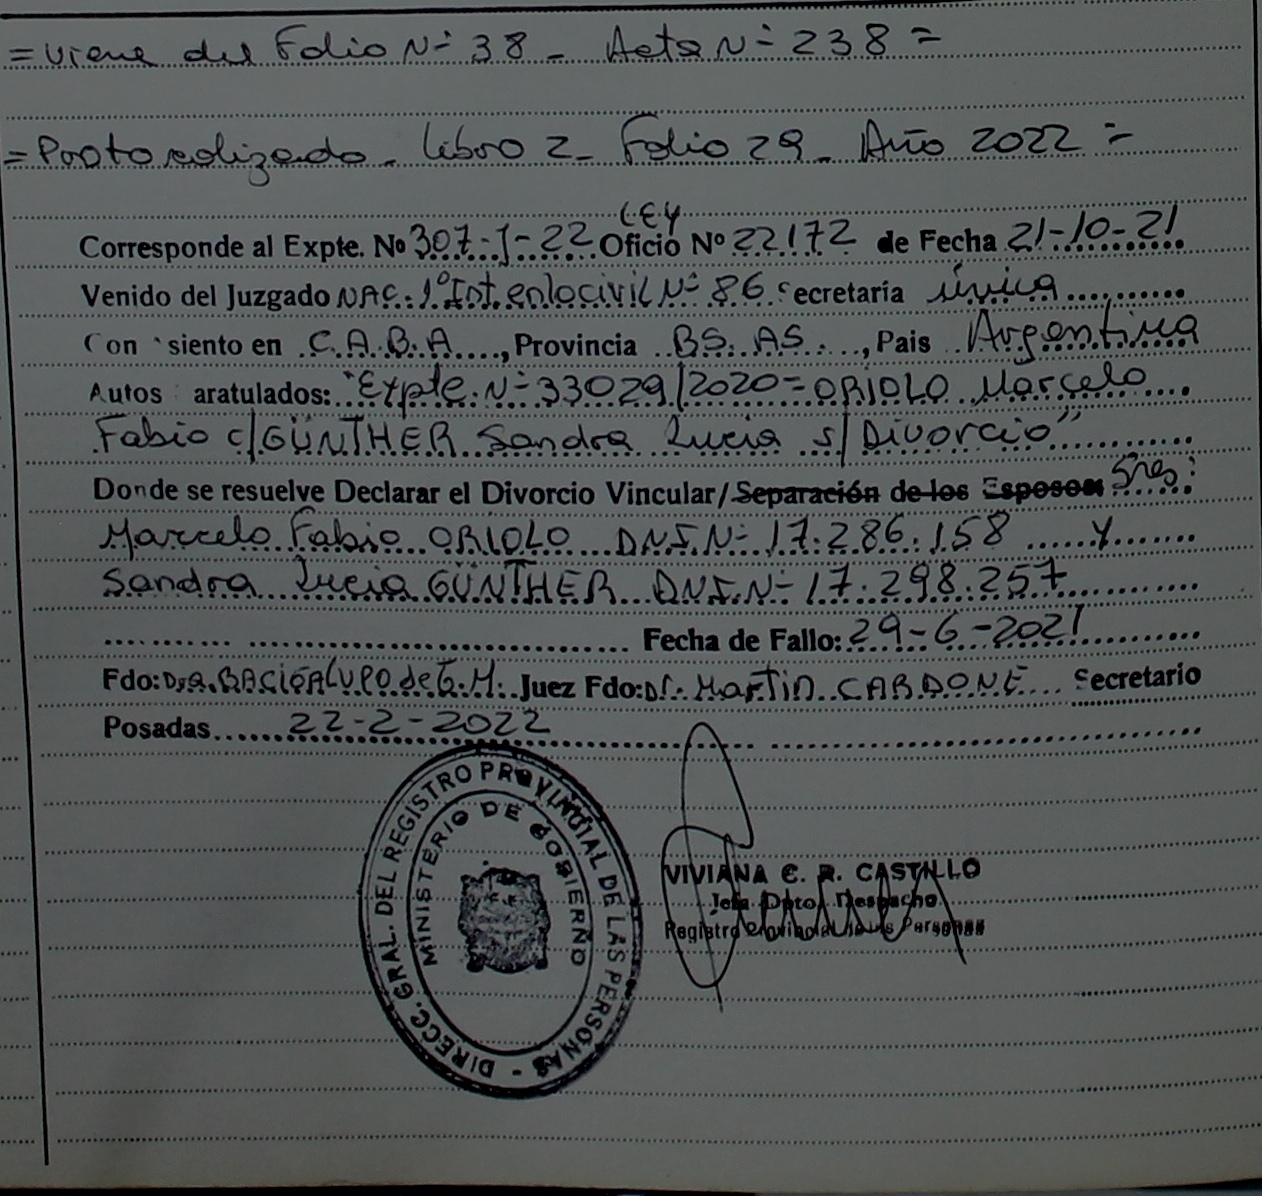 = viene del Folio Nº 38 - Acta Nº 238 =
= Protocolizado - Libro 2 - Folio 29 - Año 2022 =
LEY
Corresponde al Expte. Nº 307-J-22 Oficio Nº 22172 de Fecha 21-10-21
Venido del Juzgado NAC. 1º Inst. en lo civil Nº 86 Secretaría única
Con siento en C.A.B.A, Provincia BS. AS., Pais Argentina
Autos aratulados: "Expte. Nº 33029/2020 = ORIOLO Marcelo
Fabio c/GÜNTHER Sandra Lucia s/Divorcio"
Donde se resuelve Declarar el Divorcio Vincular/Separación de los Esposos Sres:
Marcelo Fabio ORIOLO D.N.I. Nº 17.286.158 y
Sandra Lucia GÜNTHER D.N.I. Nº 17.298.257
Fecha de Fallo: 29-6-2021
Fdo: Dra. BACIGALUPO de G. M. Juez Fdo: Dr. Martin CARDONE Secretario
Posadas 22-2-2022
DIRECC. GRAL. DEL REGISTRO PROVINCIAL DE LAS PERSONAS -
MINISTERIO DE GOBIERNO
VIVIANA C. R. CASTILLO
Jefa Dpto. Despacho
Registro Provincial de las Personas